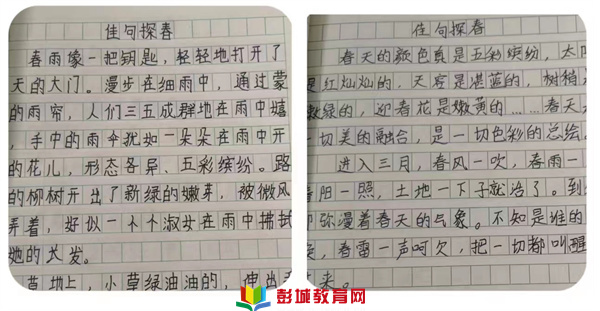 佳句探春
春雨像一把钥匙，轻轻地打开了
天的大门。漫步在细雨中，通过蒙
的雨帘，人们三五成群地在雨中嬉
，手中的雨伞犹如一朵朵在雨中开
的花儿，形态各异、五彩缤纷。路
的柳树开出了新绿的嫩芽，被微风
弄着，好似一个个淑女在雨中拂拭
她的长发。
草地上，小草绿油油的，伸出
佳句探春
春天的颜色真是五彩缤纷，太
是红灿灿的，天空是湛蓝的，树梢
嫩绿的，迎春花是嫩黄的……春天
一切美的融合，是一切色彩的总绘
进入三月，春风一吹，春雨一
春阳一照，土地一下子就活了。到
弥漫着春天的气象。不知是谁的
，春雷一声呵欠，把一切都叫醒
来。
彭城教育网